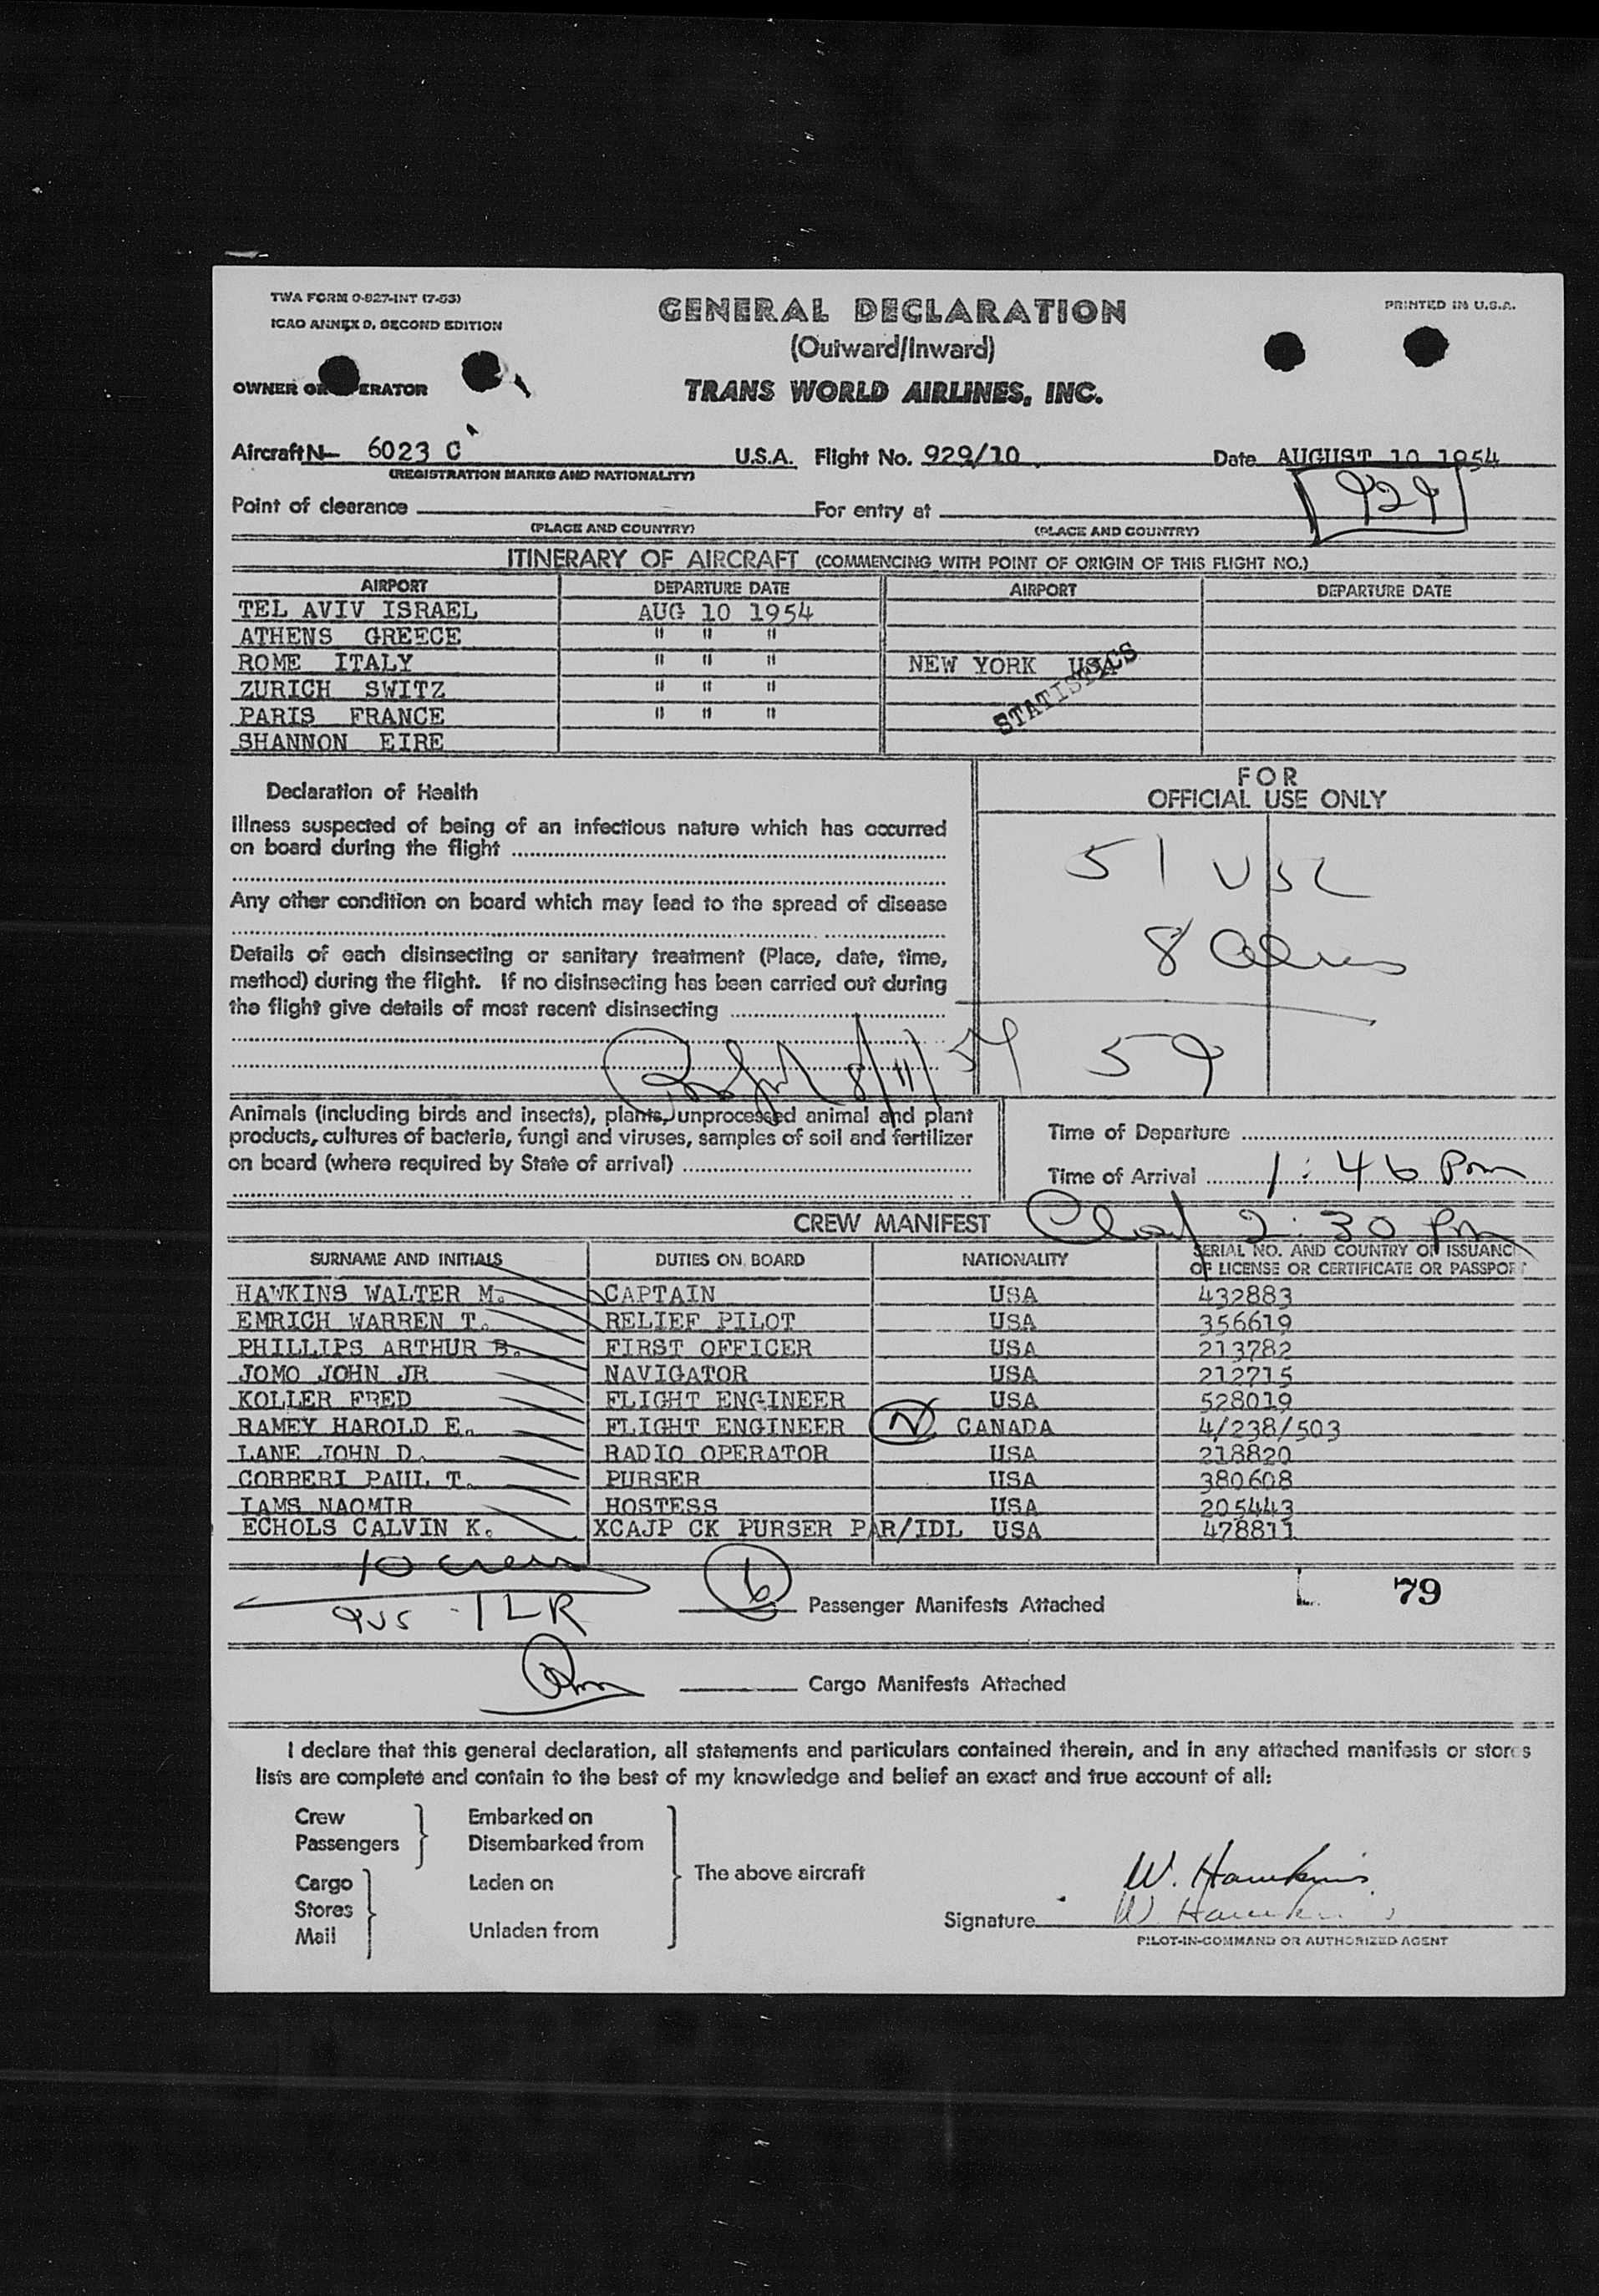 TWA FORM O-827-INT (7-53)
ICAO ANNEX 9, SECOND EDITION
GENERAL DECLARATION
PRINTED IN U.S.A.
(Outward/Inward)
OWNER OR ERATOR
TRANS WORLD AIRLINES, INC.
Aircraft N- 6023 C U.S.A. Flight No. 929/10 Date AUGUST 10 1954
(REGISTRATION MARKS AND NATIONALITY)
929
Point of clearance For entry at
(PLACE AND COUNTRY) (PLACE AND COUNTRY)
ITINERARY OF AIRCRAFT (COMMENCING WITH POINT OF ORIGIN OF THIS FLIGHT NO.)
AIRPORT DEPARTURE DATE AIRPORT DEPARTURE DATE
TEL AVIV ISRAEL AUG 10 1954
ATHENS GREECE " " "
ROME ITALY " " " NEW YORK USA
ZURICH SWITZ " " "
STATISTICS
PARIS FRANCE " " "
SHANNON EIRE
Declaration of Health
Illness suspected of being of an infectious nature which has occurred
on board during the flight
Any other condition on board which may lead to the spread of disease
Details of each disinsecting or sanitary treatment (Place, date, time,
method) during the flight. If no disinsecting has been carried out during
the flight give details of most recent disinsecting
8/11/54
FOR
OFFICIAL USE ONLY
51 USC
8 Aliens
59
Animals (including birds and insects), plants, unprocessed animal and plant
products, cultures of bacteria, fungi and viruses, samples of soil and fertilizer
on board (where required by State of arrival)
Time of Departure
Time of Arrival 1:46 Pm
2:30 Pm
CREW MANIFEST
SURNAME AND INITIALS DUTIES ON BOARD NATIONALITY SERIAL NO. AND COUNTRY OF ISSUANC
OF LICENSE OR CERTIFICATE OR PASSPORT
HAWKINS WALTER M. CAPTAIN USA 432883
EMRICH WARREN T. RELIEF PILOT USA 356619
PHILLIPS ARTHUR B. FIRST OFFICER USA 213782
JOMO JOHN JR NAVIGATOR USA 212715
KOLLER FRED FLIGHT ENGINEER USA 528019
RAMEY HAROLD E. FLIGHT ENGINEER N CANADA 4/238/503
LANE JOHN D. RADIO OPERATOR USA 218820
CORBERI PAUL T. PURSER USA 380608
IAMS NAOMIR HOSTESS USA 205443
ECHOLS CALVIN K. XCAJP CK PURSER PAR/IDL USA 478811
10 crew
9US - 1 LR
6 Passenger Manifests Attached
L 79
Cargo Manifests Attached
I declare that this general declaration, all statements and particulars contained therein, and in any attached manifests or stores
lists are complete and contain to the best of my knowledge and belief an exact and true account of all:
Crew Embarked on
Passengers Disembarked from
The above aircraft
Cargo Laden on
Stores
Mail Unladen from
W. Hawkins
Signature W Hawkins
PILOT-IN-COMMAND OR AUTHORIZED AGENT